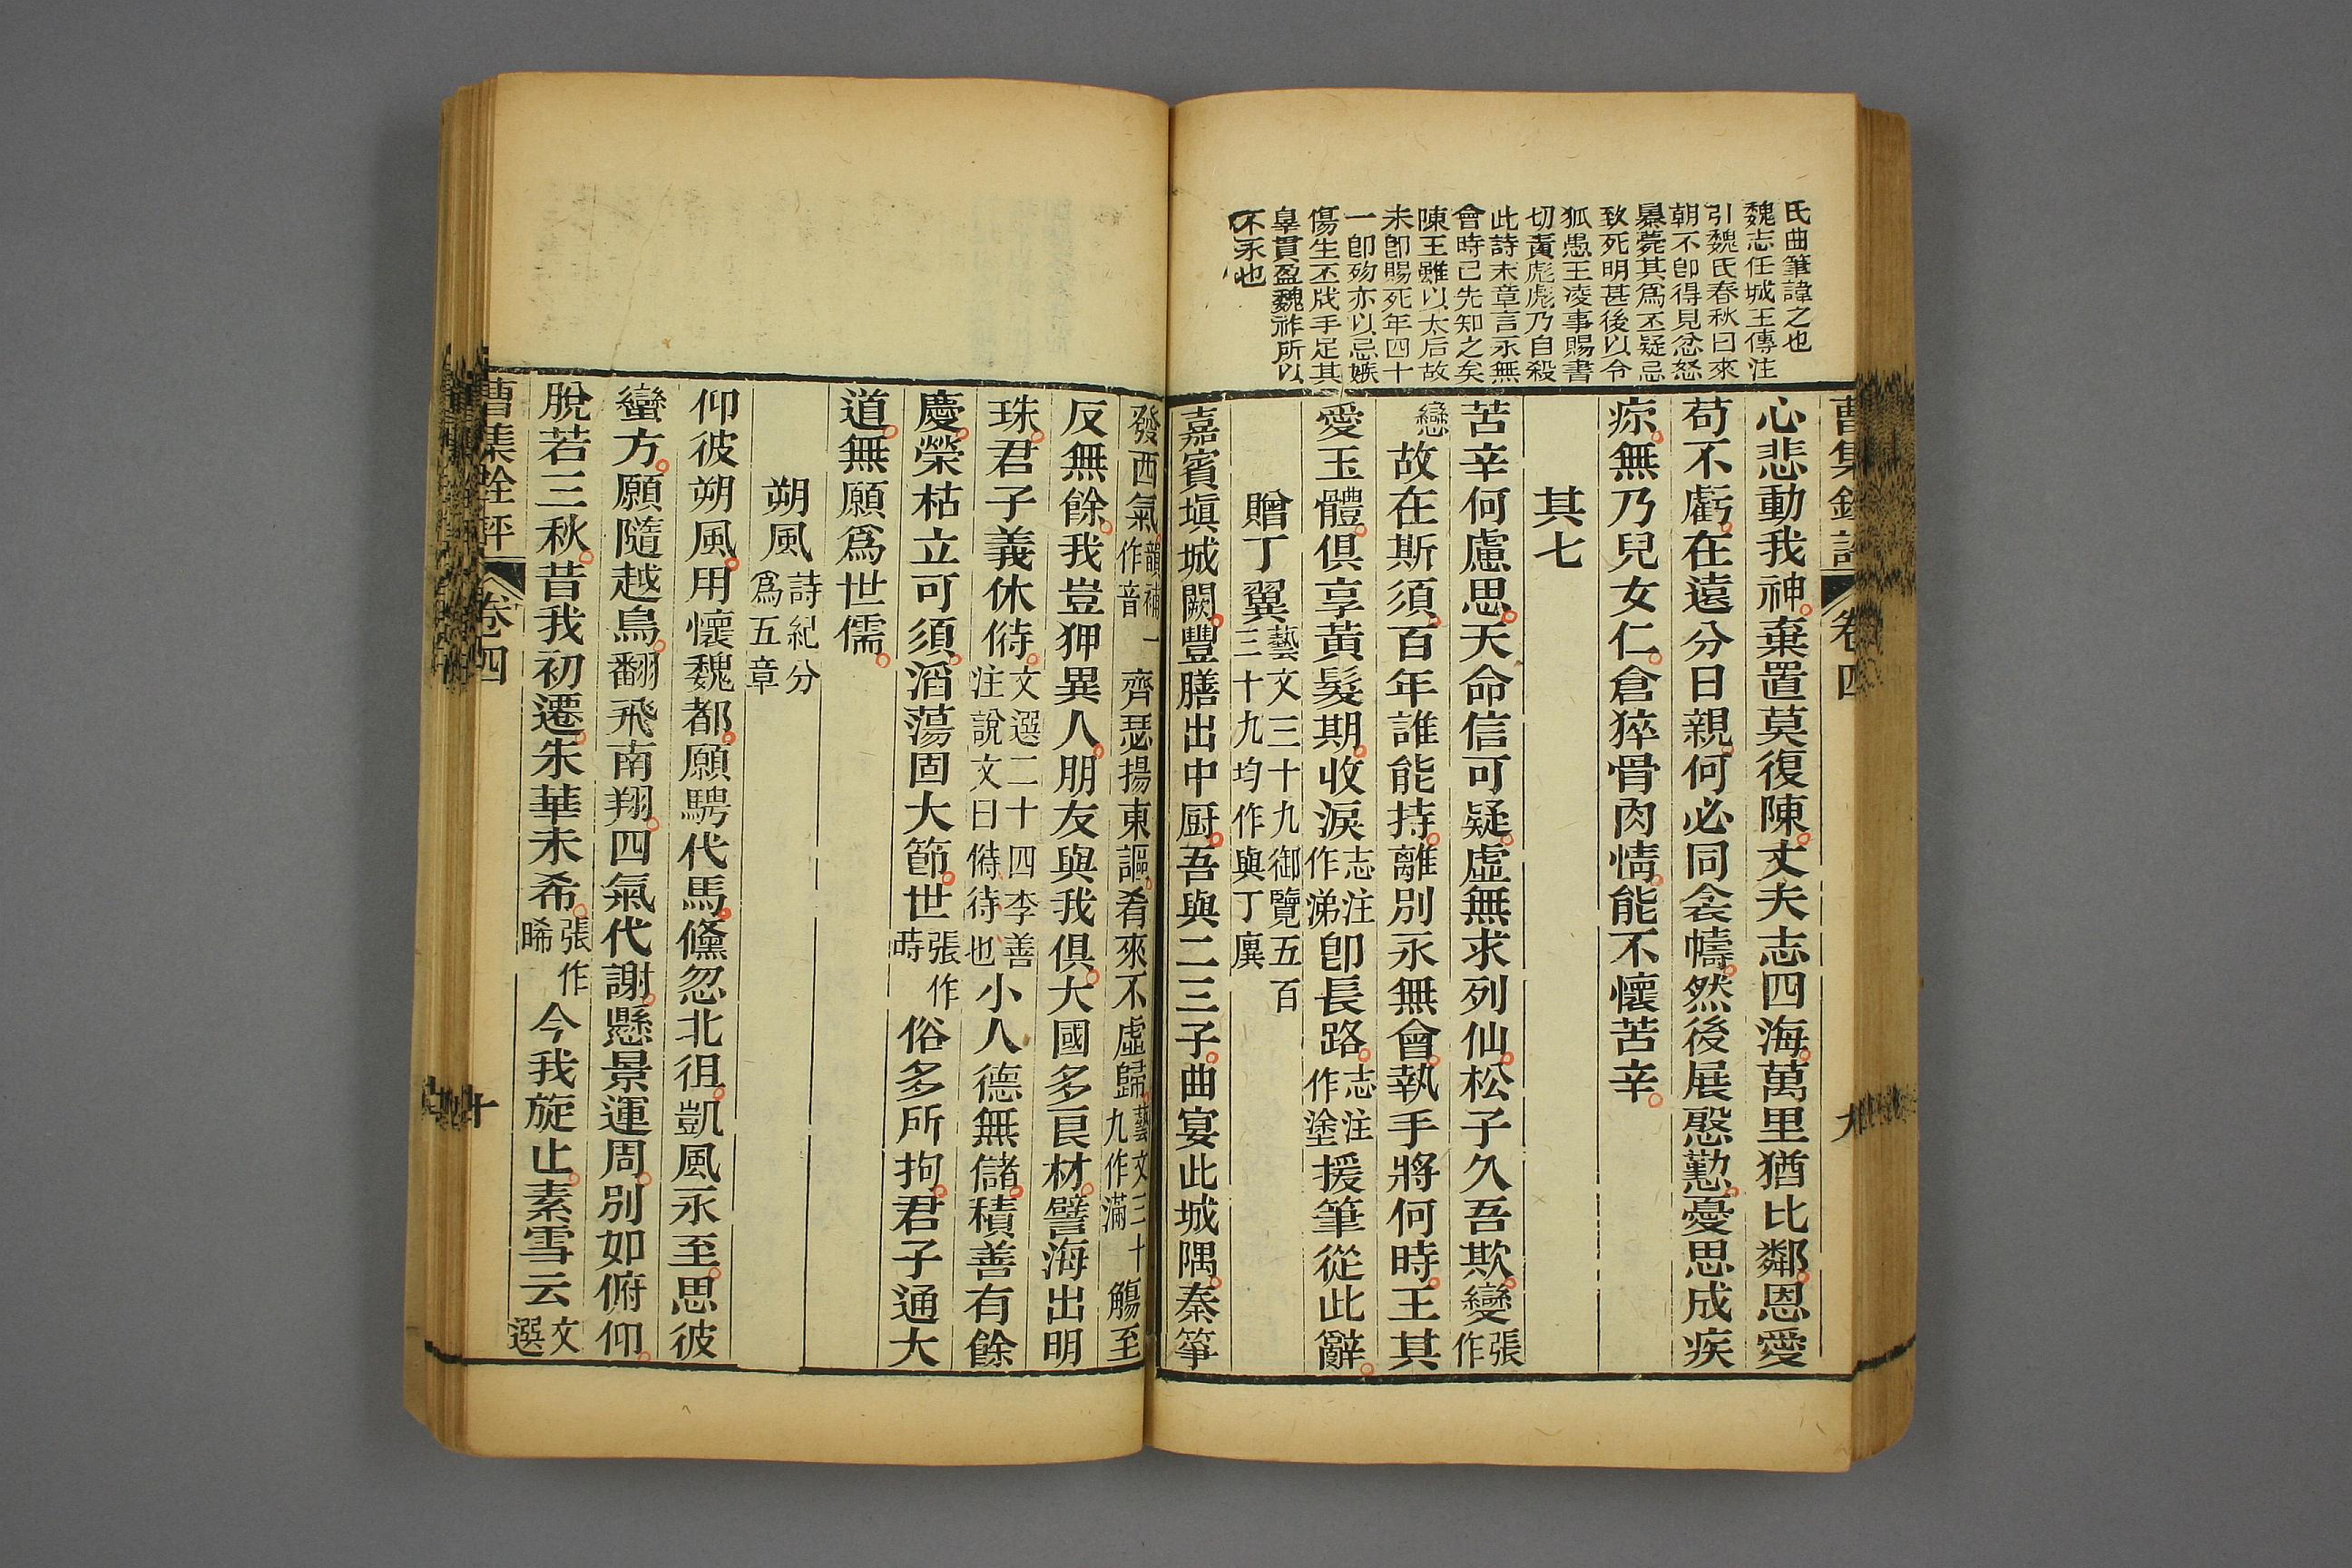 氏曲筆諱之也
魏志任城王傳注
引魏氏春秋曰來
朝不卽得見忿怒
㬥薨其爲丕疑忌
致死明甚後以令
狐愚王凌事賜書
切責彪彪乃自殺
此詩末章言永無
會時已先知之矣
陳王雖以太后故
未卽賜死年四十
一卽歿亦以忌嫉
傷生丕戕手足其
辠貫盈魏祚所以
不永也
卷四
心悲動我神棄置莫復陳丈夫志四海萬里猶比鄰恩愛
苟不虧在遠分日親何必同衾幬然後展慇懃憂思成疾
疢無乃兒女仁倉猝骨肉情能不懷苦辛
其七
苦辛何慮思天命信可疑虛無求列仙松子久吾欺變張作
戀故在斯須百年誰能持離別永無會執手將何時王其
愛玉體俱享黃髮期收淚志注作涕卽長路志注作塗援筆從此辭
贈丁翼藝文三十九御覽五百三十九均作與丁廙
嘉賓塡城闕豐膳出中厨吾與二三子曲宴此城隅秦箏
發西氣韻補一作音齊瑟揚東謳肴來不虛歸藝文三十九作滿觴至
反無餘我豈狎異人朋友與我俱大國多良材譬海出明
珠君子義休偫文選二十四李善注說文曰偫待也小人德無儲積善有餘
慶榮枯立可須滔蕩固大節世張作時俗多所拘君子通大
道無願爲世儒
朔風詩紀分爲五章
仰彼朔風用懷魏都願騁代馬儵忽北徂凱風永至思彼
蠻方願隨越鳥翻飛南翔四氣代謝懸景運周別如俯仰
脫若三秋昔我初遷朱華未希張作晞今我旋止素雪云文選
曹集銓評 卷四 十